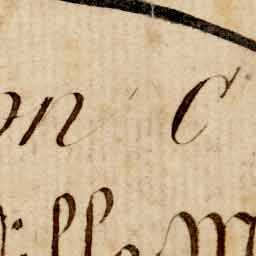 on C
ille M